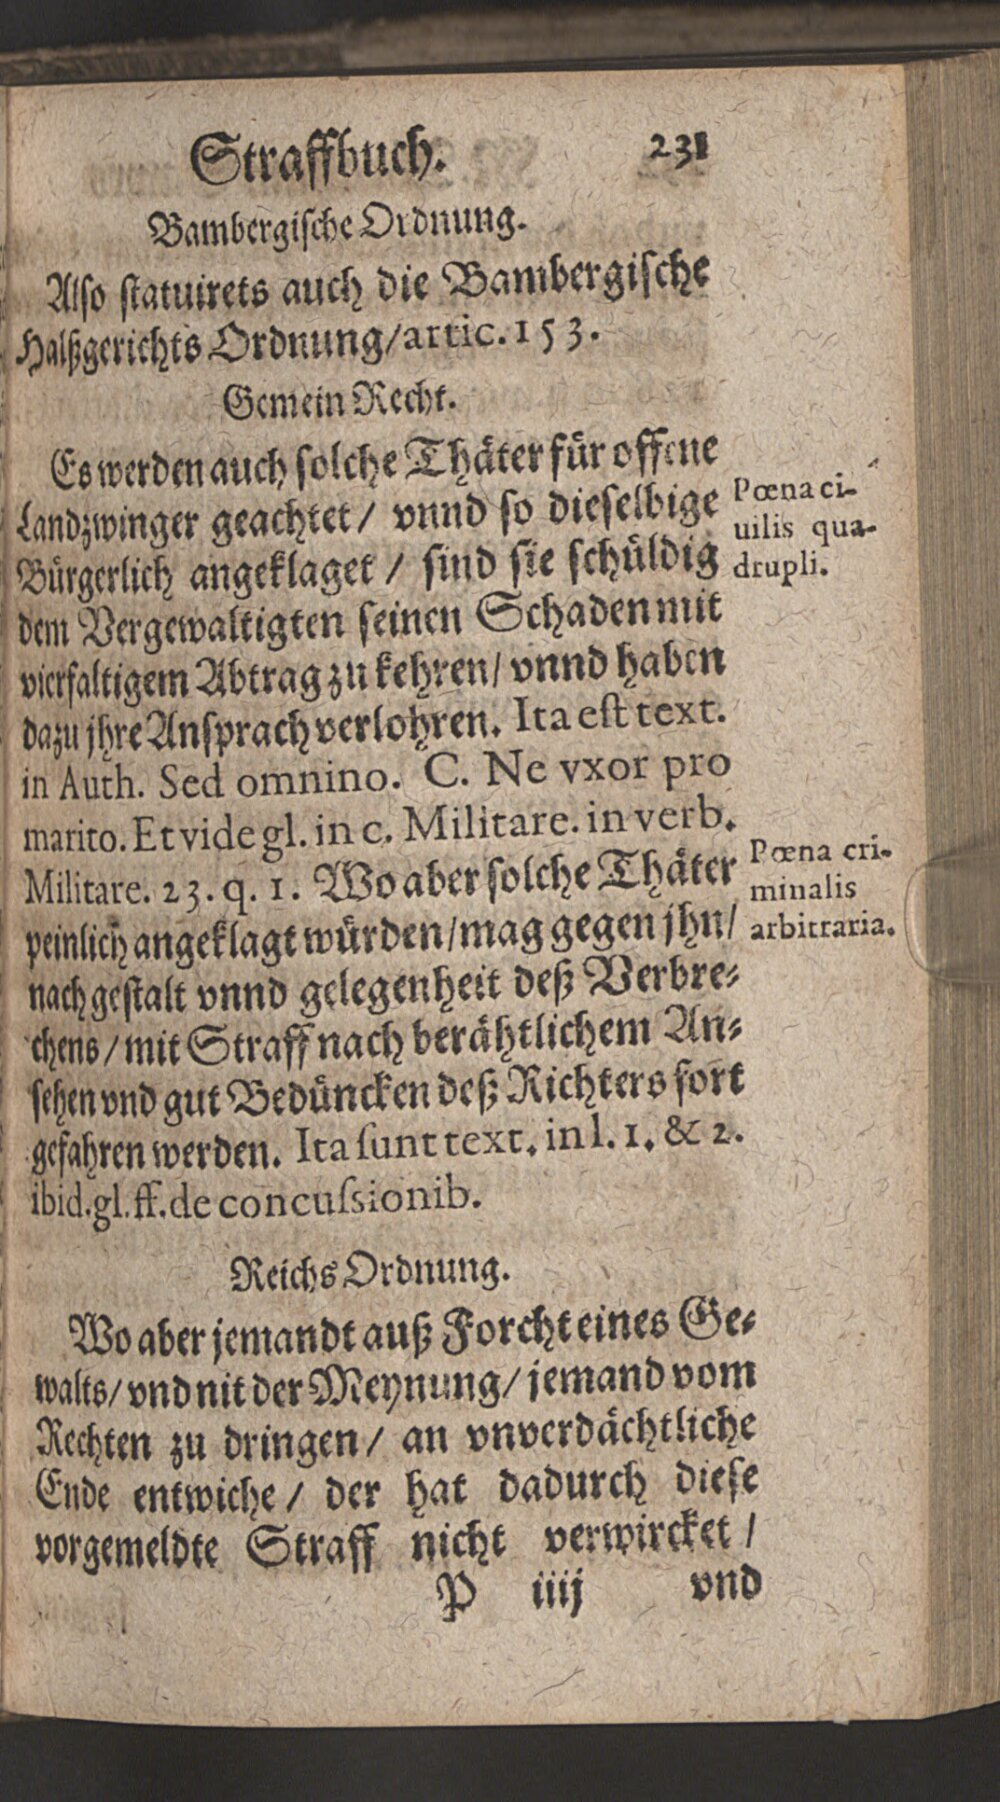 Straffbuch. 231
Bambergische Ordnung.
Also statuirets auch die Bambergische
Halßgerichts Ordnung/ artic. 153.
Gemein Recht.
Es werden auch solche Thäter für offene
Landzwinger geachtet/ vnnd so dieselbige
Bürgerlich angeklaget/ sind sie schüldig
dem Vergewaltigten seinen Schaden mit
vierfaltigem Abtrag zu kehren/ vnnd haben
dazu jhre Ansprach verlohren. Ita est text.
in Auth. Sed omnino. C. Ne vxor pro
marito. Et vide gl. in c. Militare. in verb.
Militare. 23. q. 1. Wo aber solche Thäter
peinlich angeklagt würden/ mag gegen jhn/
nach gestalt vnnd gelegenheit deß Verbre-
chens/ mit Straff nach berähtlichem An-
sehen vnd gut Bedüncken deß Richters fort
gefahren werden. Ita sunt text. in l. 1. & 2.
ibid. gl. ff. de concussionib.
Pœna ci-
uilis qua-
drupli.
Pœna cri-
minalis
arbitraria.
Reichs Ordnung.
Wo aber jemandt auß Forcht eines Ge-
walts/ vnd nit der Meynung/ jemand vom
Rechten zu dringen/ an vnverdächtliche
Ende entwiche/ der hat dadurch diese
vorgemeldte Straff nicht verwircket/
P iiij vnd